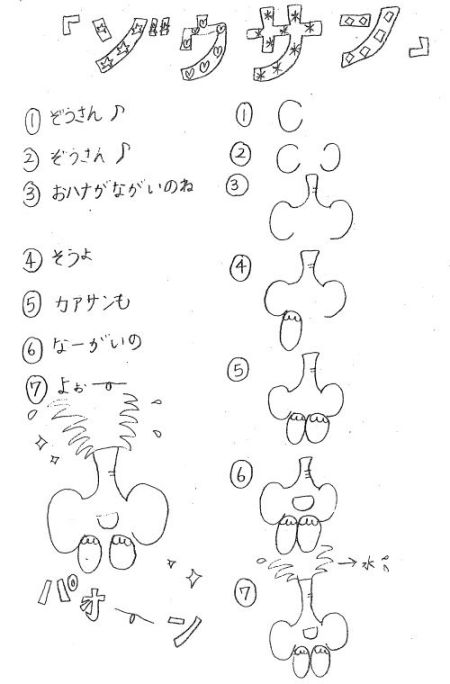 『ゾウサン』
① ぞうさん♪
② ぞうさん♪
③ おハナがながいのね
④ そうよ
⑤ カアサンも
⑥ なーがいの
⑦ よぉー
パオーン
①
②
③
④
⑤
⑥
→水
⑦